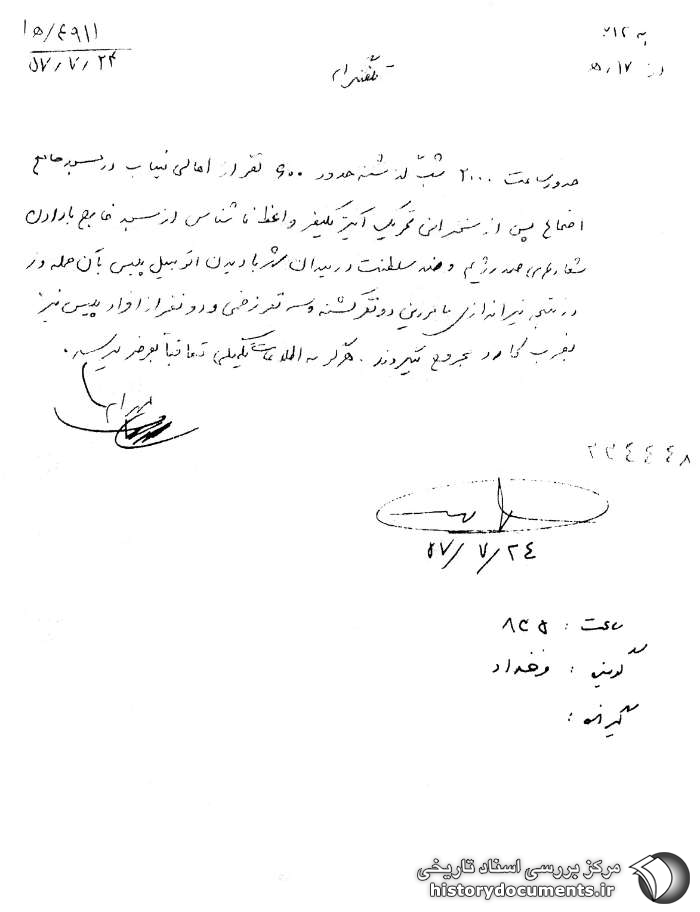 به ۳۱۲
از ۱۷/ﻫ
۱۵/۴۹۱۱
۵۷/۷/۲۴
تلفنگرام
حدود ساعت ۲۰۰۰ شب گذشته حدود ۶۰۰ نفر از اهالی میناب در مسجد جامع
اجتماع پس از سخنرانی تحریک آمیز یکنفر واعظ ناشناس از مسجد خارج با دادن
شعارهای ضد رژیم و ضد سلطنت در میدان شهر با دیدن اتومبیل پلیس بآن حمله و در
در نتیجه تیراندازی مامورین دو نفر کشته و سه نفر زخمی و دو نفر از افراد پلیس نیز
بضرب کارد مجروح میگردند. هرگونه اطلاعات تکمیلی متعاقباً بعرض میرسد.
بهرام
۲۲۴۴۴۸
۵۷/۷/۲۴
ساعت : ۸۳۵
گوینده : وخداد
گیرنده :
مرکز بررسی اسناد تاریخی
historydocuments.ir